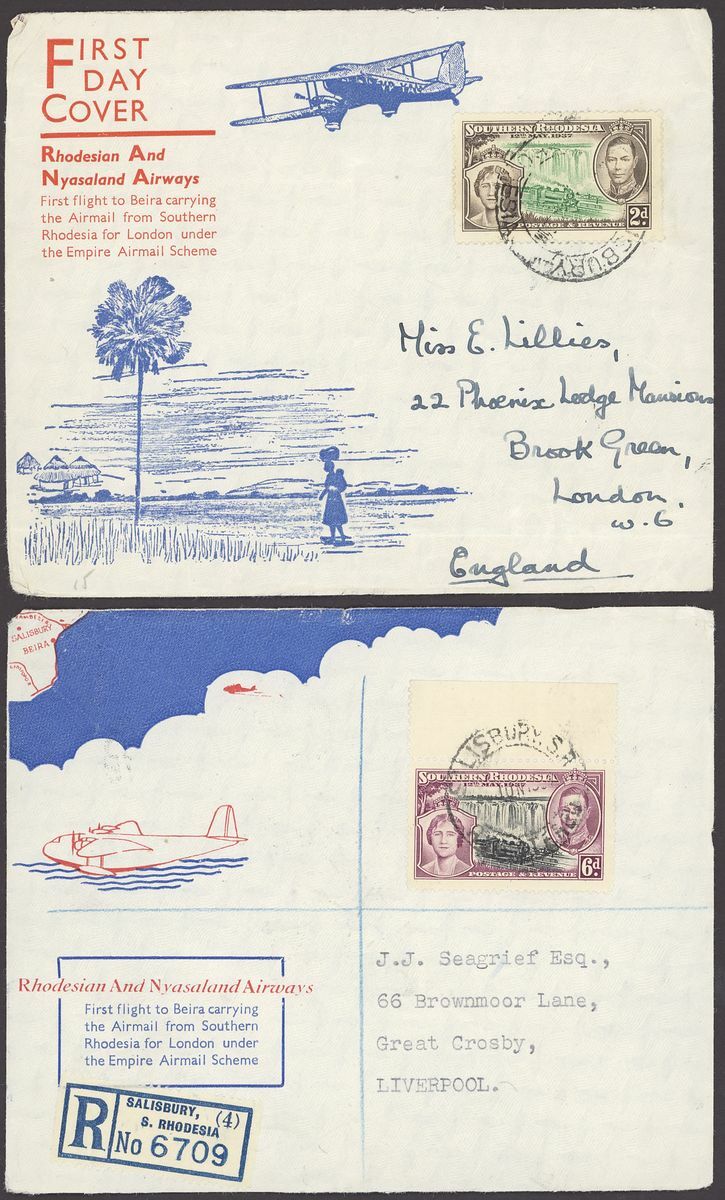 FIRST
DAY
COVER
Rhodesian And
Nyasaland Airways
First flight to Beira carrying
the Airmail from Southern
Rhodesia for London under
the Empire Airmail Scheme
SOUTHERN RHODESIA
12TH MAY. 1937
POSTAGE & REVENUE
2d.
Miss E. Lillies,
22 Phoenix Lodge Mansions
Brook Green,
London.
W.6
England
15
SALISBURY
BEIRA
SALISBURY, S.R.
SOUTHERN RHODESIA
12TH MAY. 1937
POSTAGE & REVENUE
6d.
Rhodesian And Nyasaland Airways
First flight to Beira carrying
the Airmail from Southern
Rhodesia for London under
the Empire Airmail Scheme
J.J. Seagrief Esq.,
66 Brownmoor Lane,
Great Crosby,
LIVERPOOL.
R
SALISBURY, (4)
S. RHODESIA
No 6709